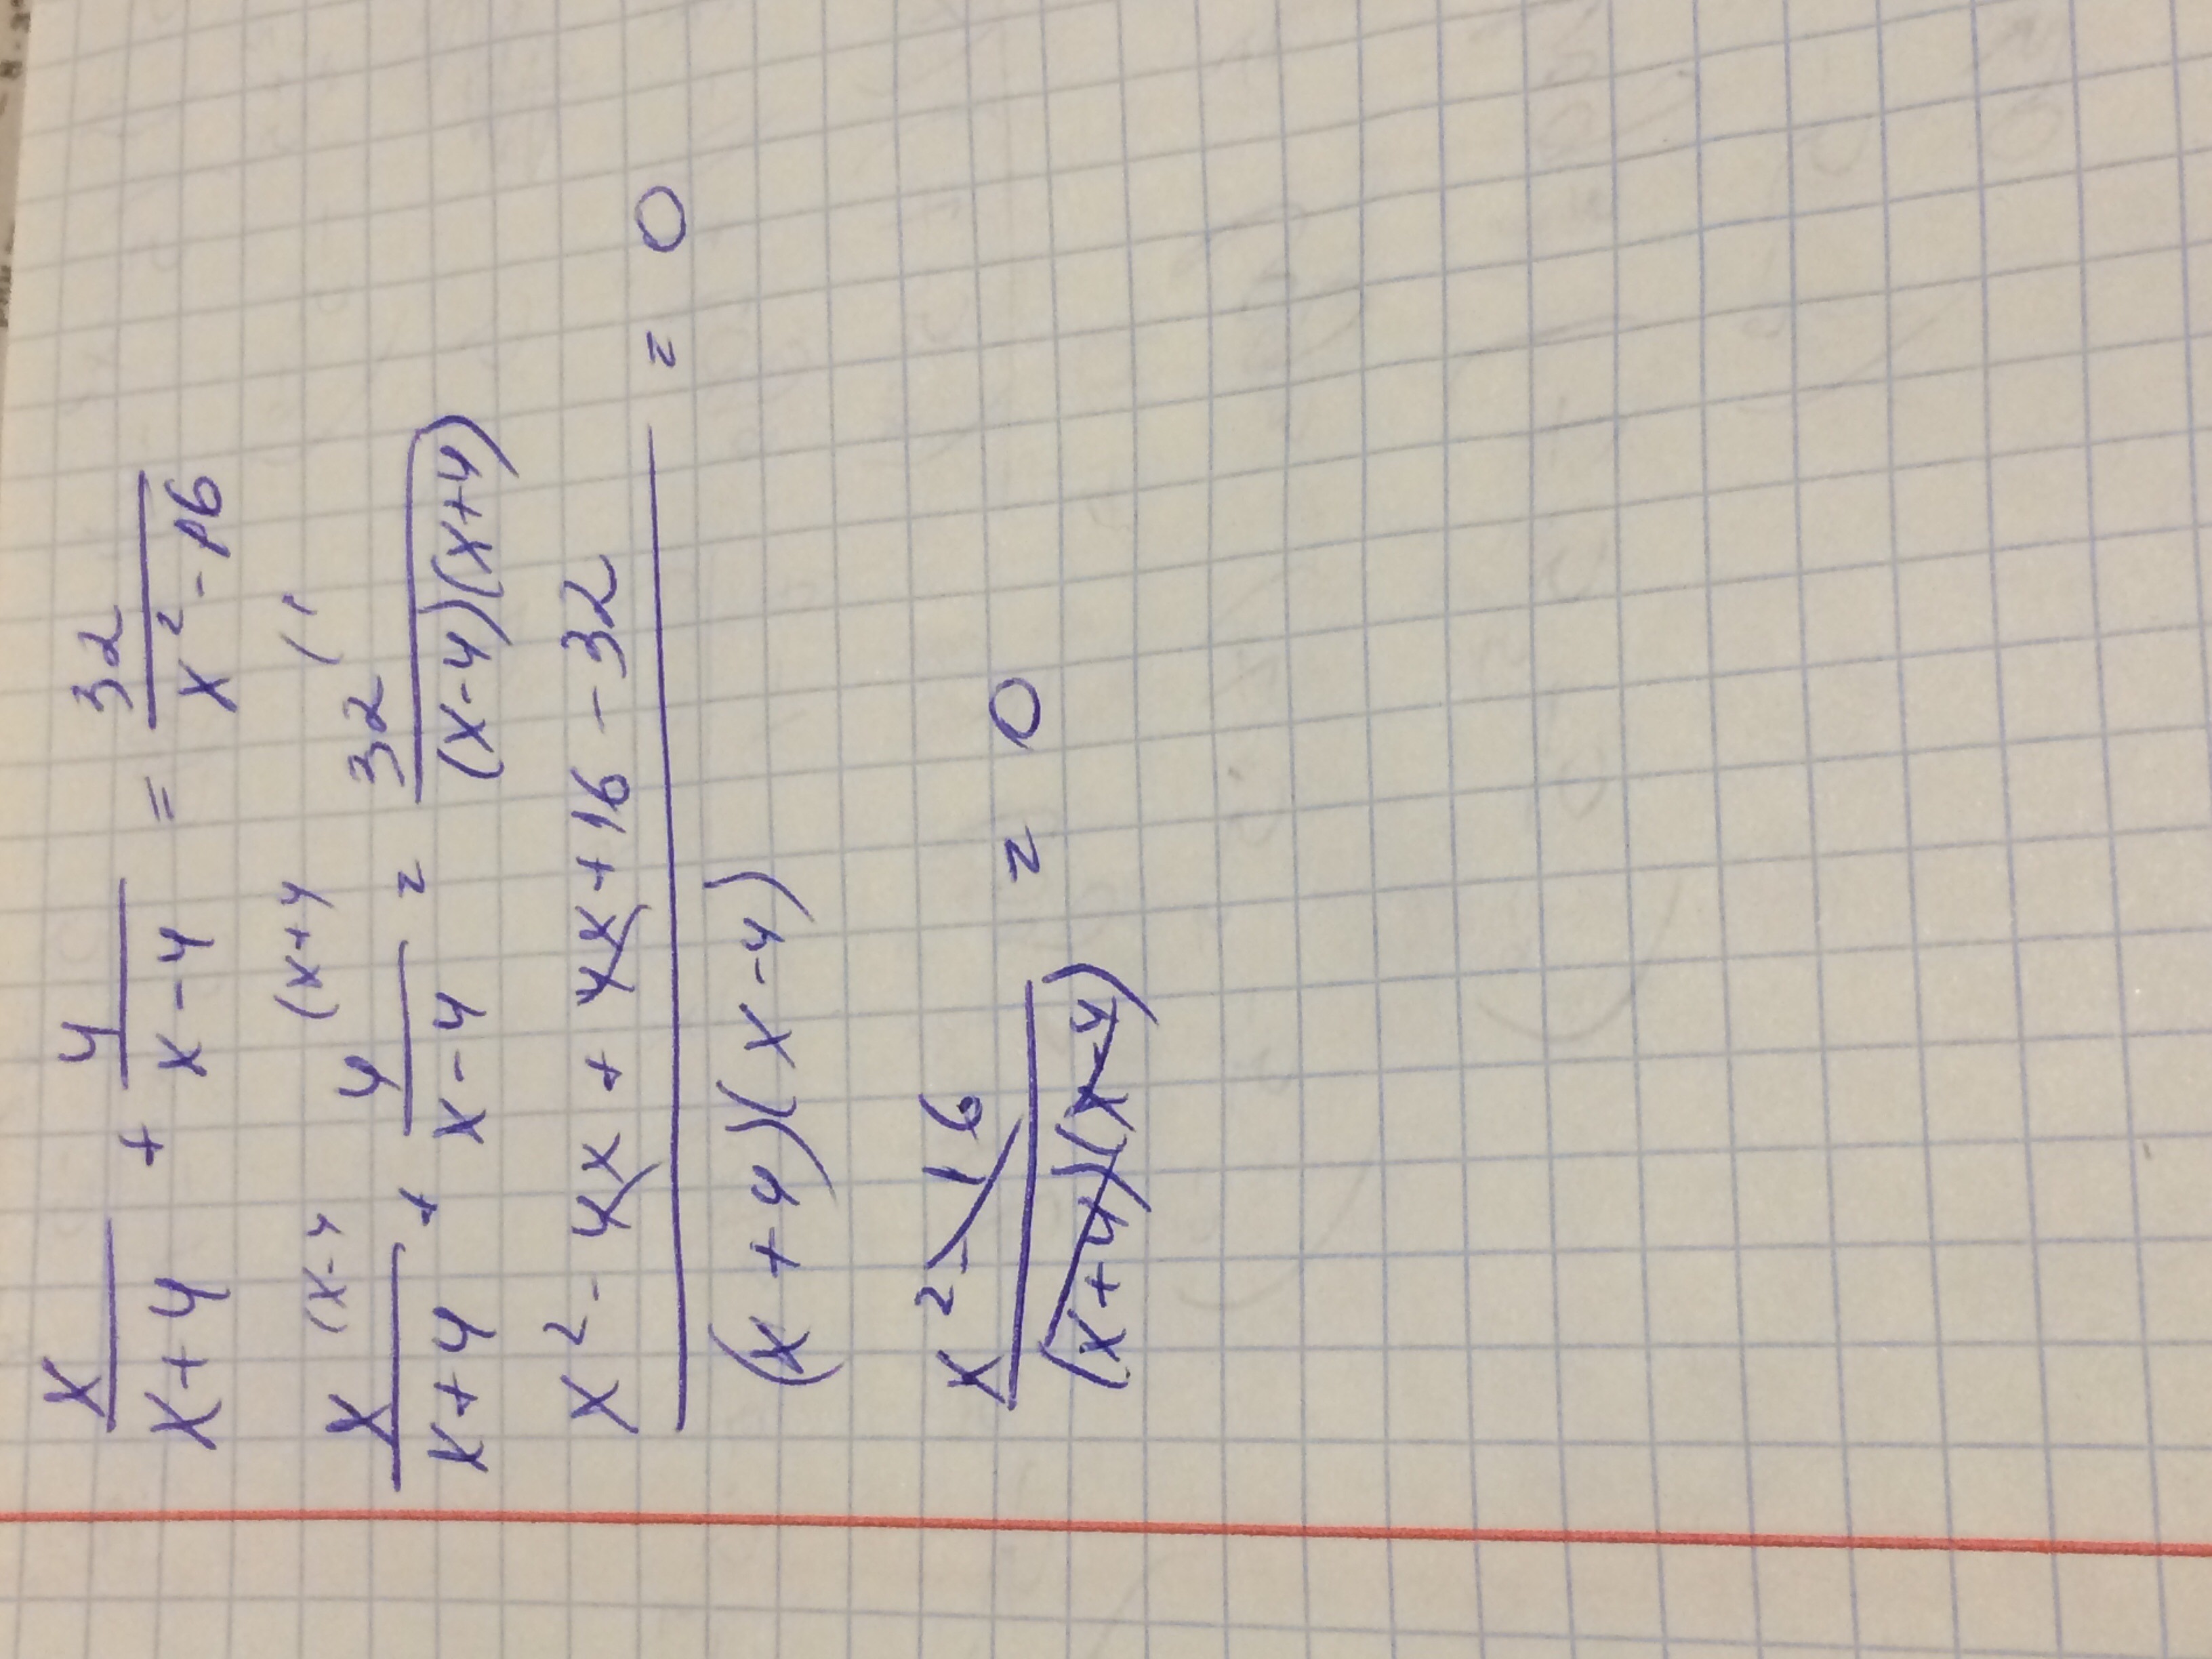 x/(x+4) + 4/(x-4) = 32/(x²-16)
(x-4 (x+4 (1
x/(x+4) + 4/(x-4) = 32/((x-4)(x+4))
(x²-4x+4x+16-32)/((x+4)(x-4)) = 0
(x²-16)/((x+4)(x-4)) = 0